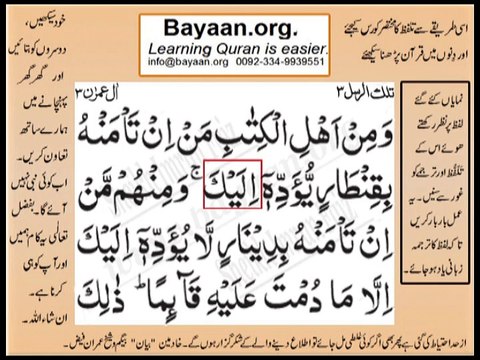 Bayaan.org.
Learning Quran is easier.
info@bayaan.org 0092-334-9939551
اسی طریقے سے تلفظ کا مختصر کورس کیجئے
اور دِنوں میں قرآن پڑھنا سیکھئے
تلك الرسل ٣
اٰل عمرٰن ٣
وَمِنْ اَهْلِ الْكِتٰبِ مَنْ اِنْ تَاْمَنْهُ
بِقِنْطَارٍ يُّؤَدِّهٖٓ اِلَيْكَ ۚ وَمِنْهُمْ مَّنْ
اِنْ تَاْمَنْهُ بِدِيْنَارٍ لَّا يُؤَدِّهٖٓ اِلَيْكَ
اِلَّا مَا دُمْتَ عَلَيْهِ قَآىِٕمًا ؕ ذٰلِكَ
نمایاں کئے گئے
لفظ پر نظر رکھتے
ھوئے اس کے
تلفُّظ اور ترجمے کو
غور سے سنیں۔ یہ
عمل بار بار کریں
تا کہ لفظ کا ترجمہ
زبانی یاد ہو جائے۔
خود سیکھیں،
دوسروں کو بتائیں
اور گھر گھر
پہنچانے میں
ہمارے ساتھ
تعاون کریں۔
اب کوئی نبی نہیں
آئے گا۔ بفضل
تعالی یہ کام ہمیں
اور آپ کو ہی
کرنا ہے۔
ان شاء اللہ۔
از حد احتیاط کی گئی ہے پھر بھی اگر کوئی غلطی مل جائے تو اطلاع دینے والے کے شکر گزار ہوں گے۔ خادمین "بیان" بیگم و شیخ عمران فیض۔